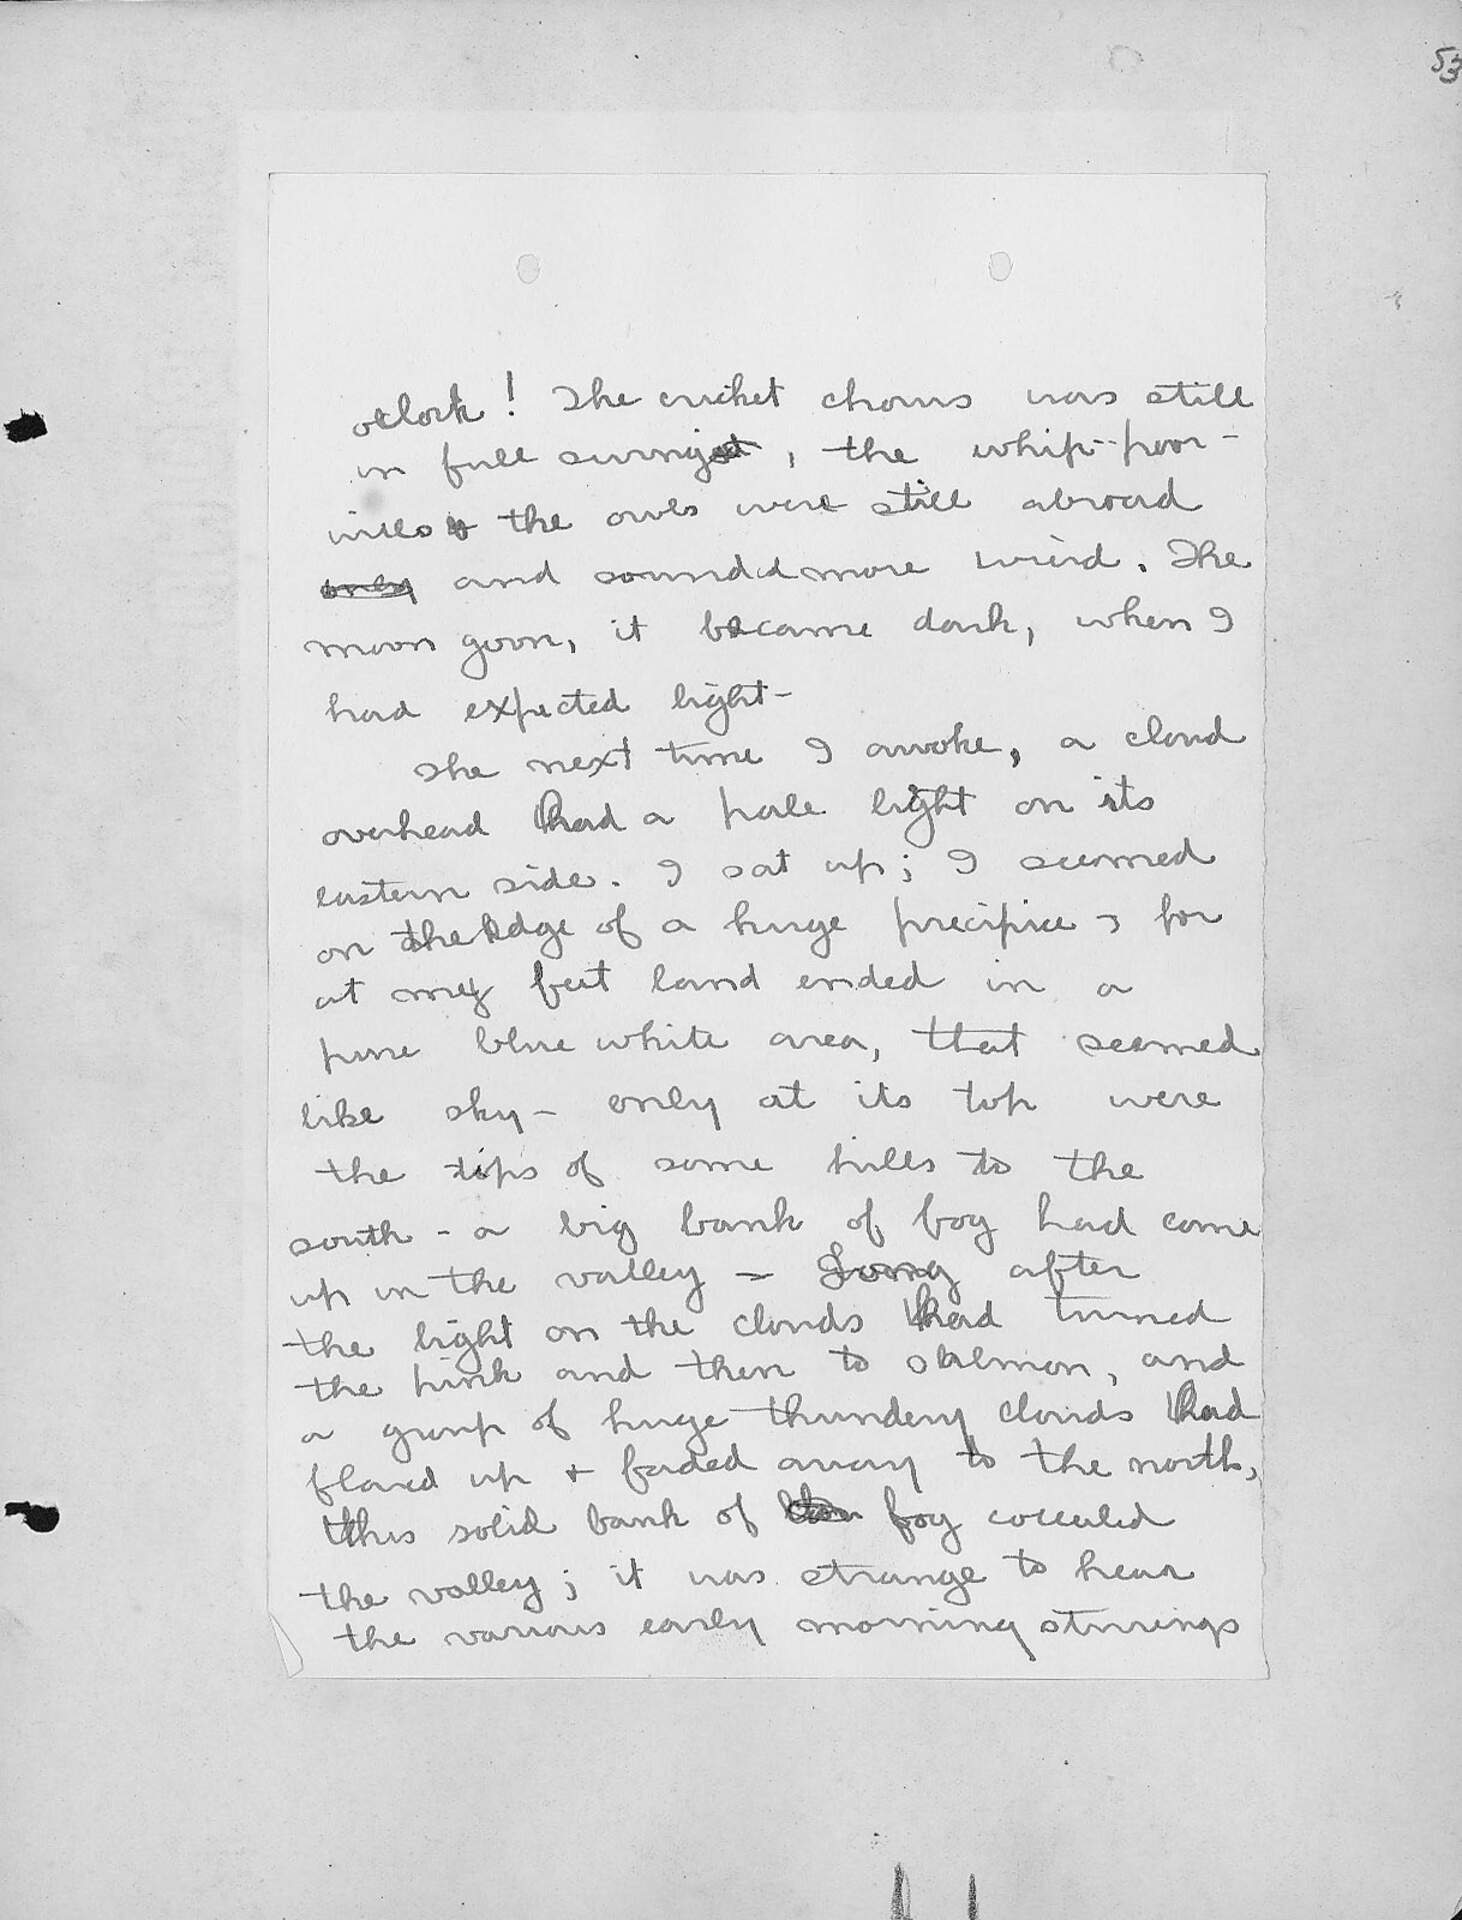 53
oclock! The cricket chorus was still
in full swing, the whip-poor-
wills & the owls were still abroad
only and sounded more wierd. The
moon goon, it became dark, when I
had expected light-
The next time I awoke, a cloud
overhead had a pale light on its
eastern side. I sat up; I seemed
on the edge of a huge precipice, for
at my feet land ended in a
pure blue white area, that seemed
like sky - only at its top were
the tips of some hills to the
south - a big bank of fog had come
up in the valley - Long after
the light on the clouds had turned
the pink and then to salmon, and
a group of huge thundery clouds had
flared up + faded away to the north,
this solid bank of fog concealed
the valley; it was strange to hear
the various early morning stirrings